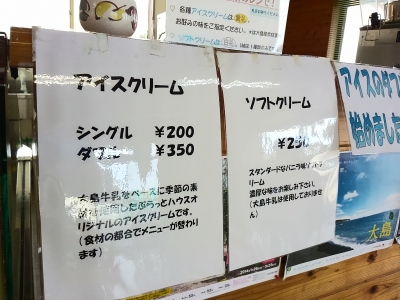 各種アイスクリームは
お好みの味をご指定ください。
アイスクリーム
シングル ￥200
ダブル ￥350
大島牛乳をベースに季節の素
材を使用したぶらっとハウスオ
リジナルのアイスクリームです。
(食材の都合でメニューが替わり
ます)
ソフトクリーム
￥250
スタンダードなバニラ味ソフトク
リーム
濃厚な味をお楽しみ下さい。
(大島牛乳は使用しておりませ
ん)
アイスの
始めました
大島